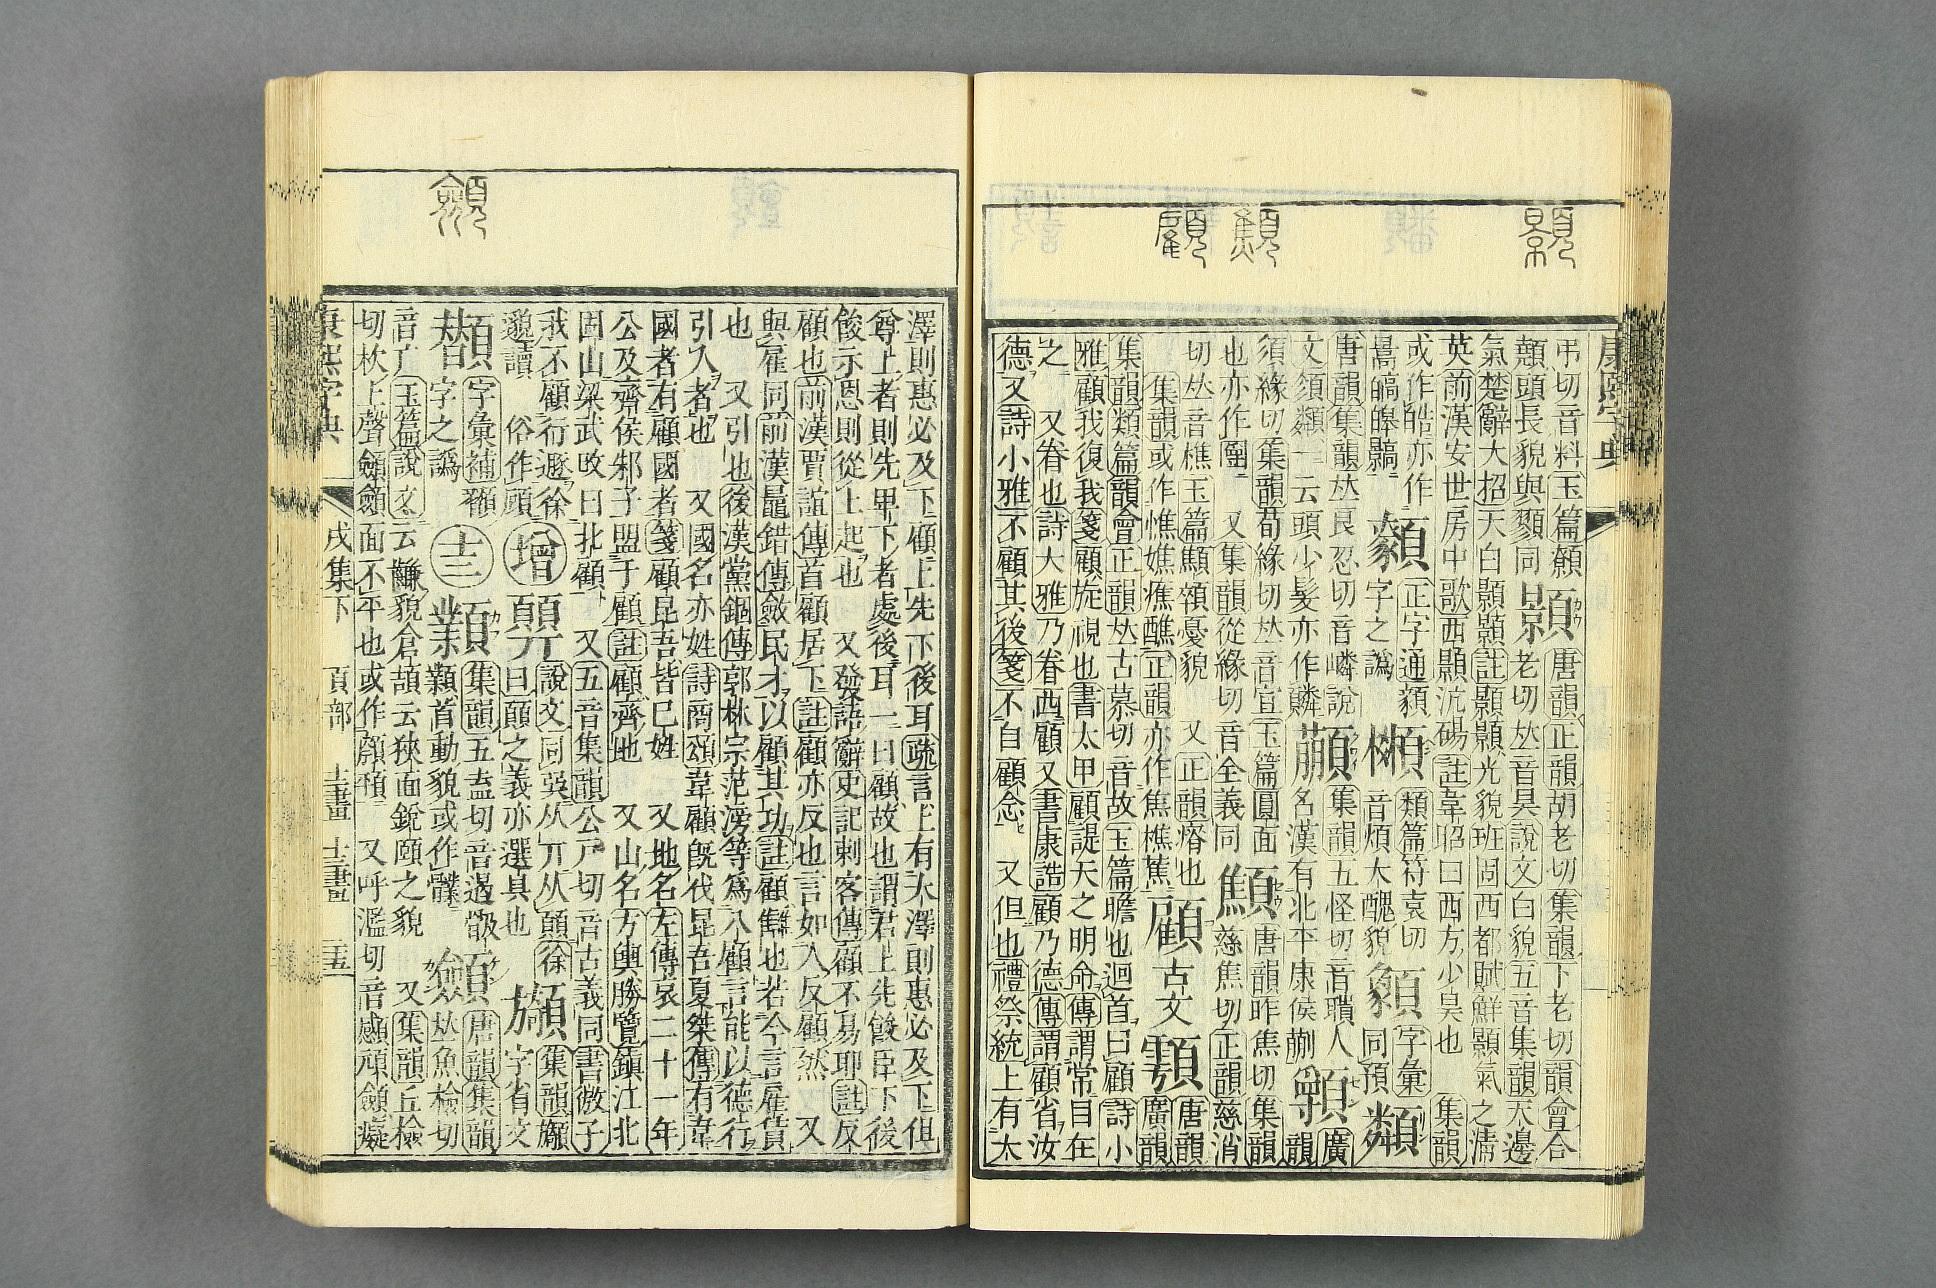 康熙字典
弔切音料玉篇顤顥唐韻正韻胡老切集韻下老切韻會合
顤頭長貌與顟同老切𠀤音昊說文白貌五音集韻天邊
氣楚辭大招天白顥顥註顥顥光貌班固西都賦鮮顥氣之淸
英前漢安世房中歌西顥沆碭註韋昭曰西方少昊也 集韻
或作皓亦作暠皜皞
正字通 字之譌
類篇符袁切音煩大醜貌
字彙同預
唐韻集韻𠀤良忍切音嶙說文
一云頭少髮亦作
集韻五怪切音聵人名漢有北平康侯
須緣切集韻荀緣切𠀤音宣玉篇圓面也亦作圜 又集韻從緣切音全義同
顦慈焦切唐韻昨焦切集韻正韻慈消切𠀤音樵玉篇顦顇憂貌 又正韻瘠也
集韻或作憔嫶癄醮正韻亦作焦樵蕉
顧古文
唐韻廣韻集韻類篇韻會正韻𠀤古慕切音故玉篇瞻也迴首曰顧詩小
雅顧我復我箋顧旋視也書太甲顧諟天之明命傳謂常目在
之 又眷也詩大雅乃眷西顧又書康誥顧乃德傳謂顧省汝
德又詩小雅不顧其後箋不自顧念 又但也禮祭統上有大
澤則惠必及下顧上先下後耳疏言上有大澤則惠必及下但
尊上者則先卑下者處後耳一曰顧故也謂君上先餕臣下後
餕示恩則從上起也 又發語辭史記刺客傳顧不易耶註反
顧也前漢賈誼傳首顧居下註顧亦反也言如人反顧然 又
與雇同前漢鼂錯傳斂民才以顧其功註顧讎也若今言雇賃
也 又引也後漢黨錮傳郭林宗范滂等爲八顧言能以德行
引人者也 又國名亦姓詩商頌韋顧旣伐昆吾夏桀傳有韋
國者有顧國者箋顧昆吾皆己姓 又地名左傳哀二十一年
公及齊侯邾子盟于顧註顧齊地 又山名方輿勝覽鎮江北
固山梁武改曰北顧 又五音集韻公戸切音古義同書微子
我不顧行遯徐邈讀 俗作頋
增 說文同巽从丌从顨徐曰顨之義亦選具也
集韻 字省文
字彙補 字之譌
士三
集韻五盍切音 首動貌或作
顩唐韻集韻𠀤魚檢切音广玉篇說文云 貌倉頡云狹面銳頤之貌 又集韻丘檢
切杴上聲顩顩面不平也或作 又呼濫切音 顩癡
康熙字典 戌集下 頁部 士二畫 士三畫 三五